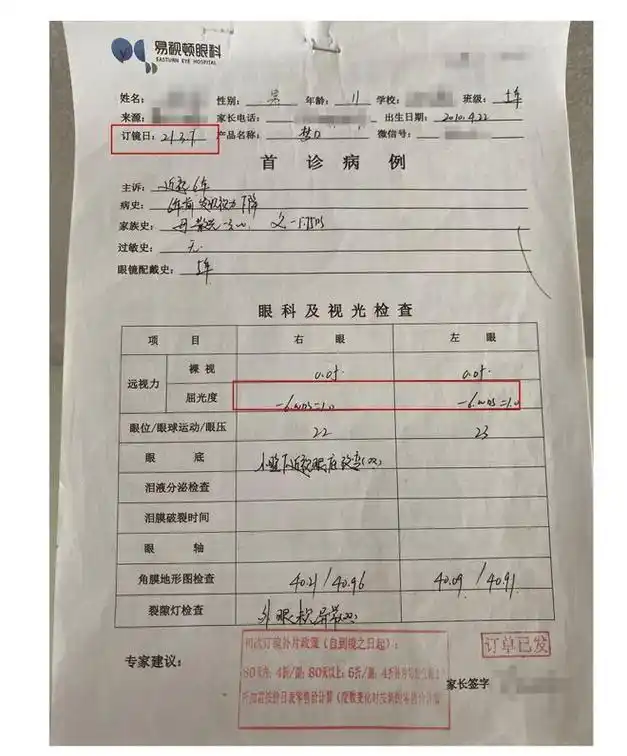 易视顿眼科
EASTURN EYE HOSPITAL
姓名： 性别： 男 年龄： 11 学校： 班级： 五年
来源： 家长电话： 出生日期： 2010.4.22
订镜日： 21.3.7 产品名称： 梦 微信号：
首诊病例
主诉： 近视6年
病史： 6年前发现视力下降
家族史： 母 -3.00 父 -1.75DS
过敏史： 无.
眼镜配戴史： 5年
眼科及视光检查
项目 右眼 左眼
远视力 裸视 0.05 0.05
屈光度 -6.00DS=1.0 -6.00DS=1.0
眼位/眼球运动/眼压 22 23
眼底 近视眼底改变(双)
泪液分泌检查
泪膜破裂时间
眼轴
角膜地形图检查 40.21/40.96 40.09/40.91
裂隙灯检查 外眼
专家建议：
初次订镜补片政策（自到镜之日起）：
80天内，4折/副；80天以上：5折/副；
订单已发
家长签字